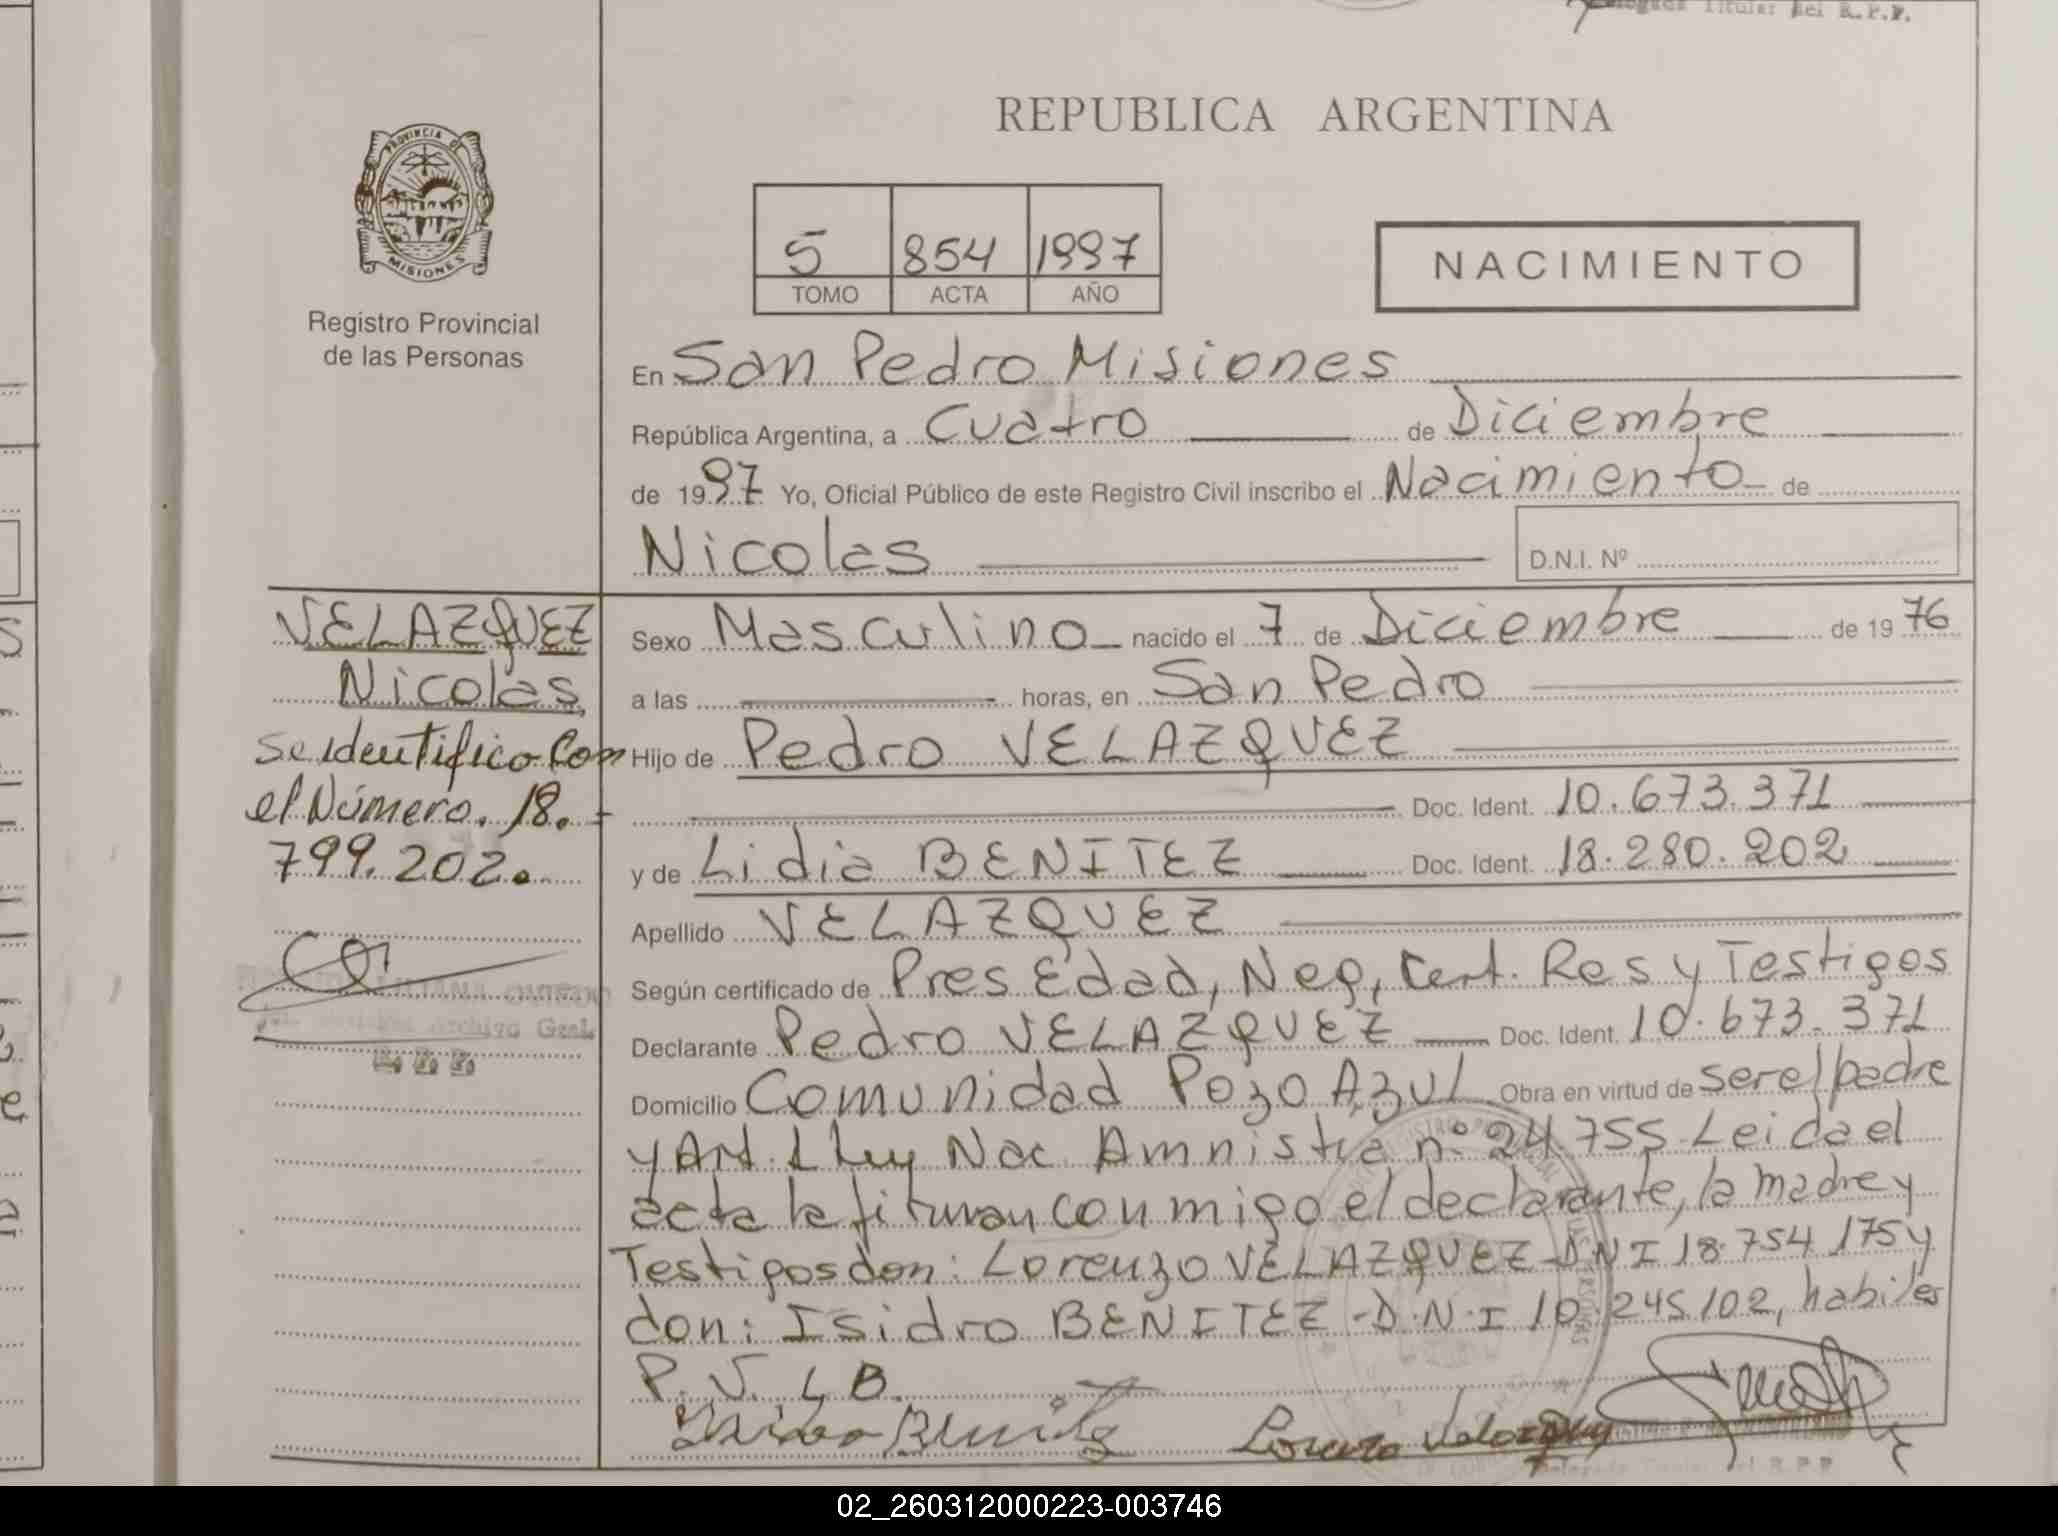 Titular del R.P.P.
REPUBLICA ARGENTINA
PROVINCIA DE
MISIONES
Registro Provincial
de las Personas
5 854 1997
TOMO ACTA AÑO
NACIMIENTO
En San Pedro Misiones
República Argentina, a Cuatro de Diciembre
de 1997 Yo, Oficial Público de este Registro Civil inscribo el Nacimiento de
Nicolas
D.N.I. Nº
VELAZQUEZ
Nicolas
se identifico Con
el Número. 18.-
799.202.
Archivo Gral.
Sexo Masculino nacido el 7 de Diciembre de 1976
a las horas, en San Pedro
Hijo de Pedro VELAZQUEZ
Doc. Ident. 10.673.371
y de Lidia BENITEZ Doc. Ident. 18.280.202
Apellido VELAZQUEZ
Según certificado de Pres Edad, Neg, Cert. Res y Testigos
Declarante Pedro VELAZQUEZ Doc. Ident. 10.673.371
Domicilio Comunidad Pozo Azul Obra en virtud de ser el padre
y Art. 1 Ley Nac Amnistia nº 24.755 Leida el
acta la firman conmigo el declarante, la madre y
Testigos don: Lorenzo VELAZQUEZ DNI 18.754 175 y
don: Isidro BENITEZ - D.N.I 10.245.102, habiles
P. V. L B.
Lorenzo Velazquez
02_260312000223-003746